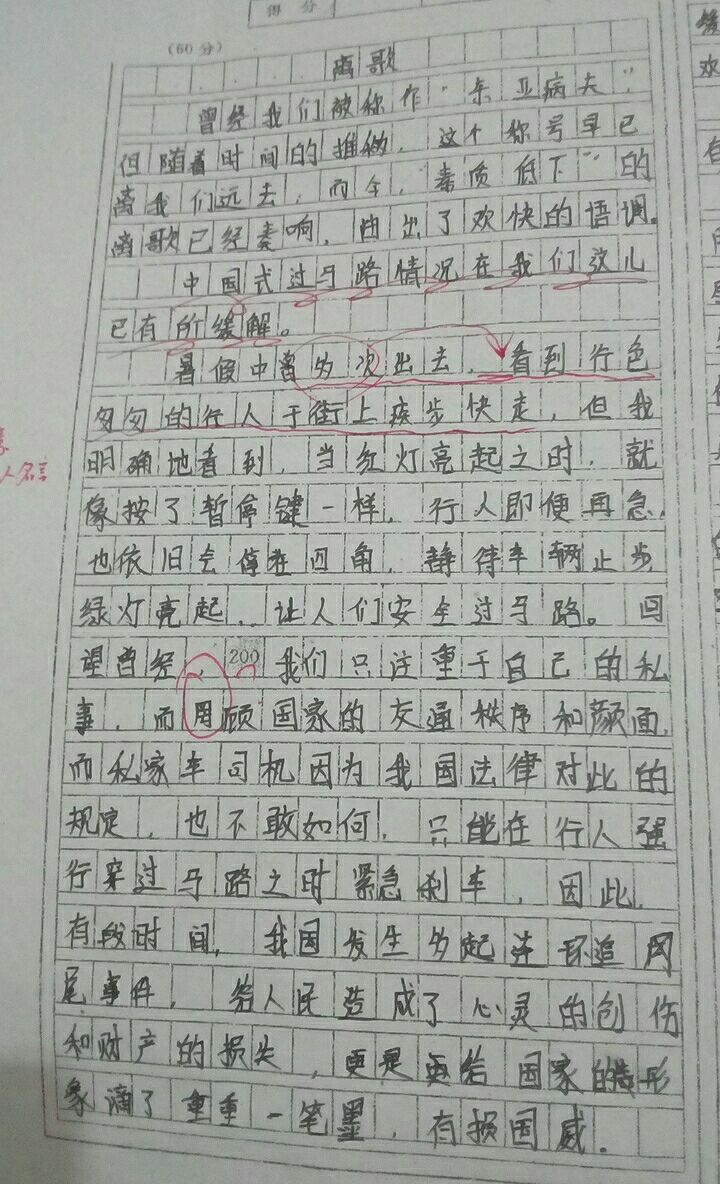 得分
(60分)
离歌
曾经我们被称作"东亚病夫",
但随着时间的推移,这个称号早已
离我们远去,而今,素质低下""的
离歌已经奏响,曲出了欢快的语调。
中国式过马路情况在我们这儿
已有所缓解。
暑假中曾多次出去,看到行色
匆匆的行人于街上疾步快走,但我
明确地看到,当红灯亮起之时,就
像按了暂停键一样,行人即便再急,
也依旧会停在四角,静待车辆止步
绿灯亮起,让人们安全过马路。回
望曾经,200我们只注重于自己的私
事,而罔顾国家的交通秩序和颜面,
而私家车司机因为我国法律对此的
规定,也不敢如何,只能在行人强
行穿过马路之时紧急刹车,因此,
有段时间,我国发生多起连环追
尾事件,给人民造成了心灵的创伤
和财产的损失,更是更给国家的形
象滴了重重一笔墨,有损国威.
人名言
欢